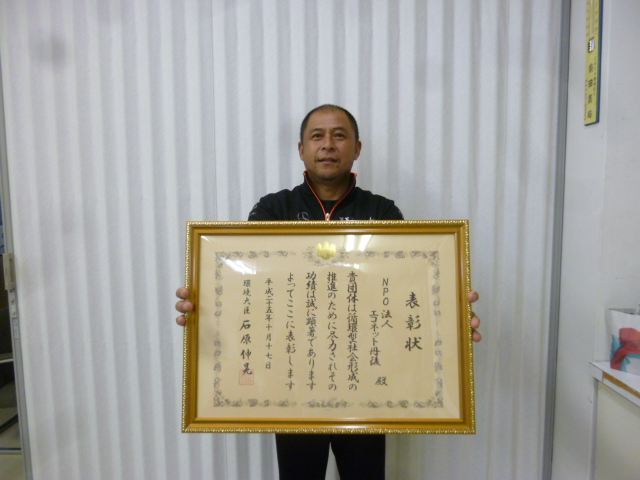 表彰状
NPO法人
エコネット丹後 殿
貴団体は循環型社会形成の
推進のために尽力されその
功績は誠に顕著であります
よってここに表彰します
平成二十五年十月十七日
環境大臣 石原伸晃